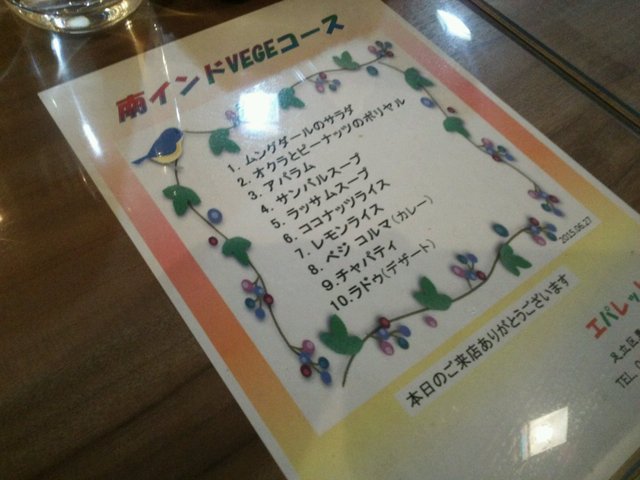 南インドVEGEコース
1. ムングダールのサラダ
2. オクラとピーナッツのポリヤル
3. アパラム
4. サンバルスープ
5. ラッサムスープ
6. ココナッツライス
7. レモンライス
8. ベジ コルマ(カレー)
9.チャパティ
10.ラドゥ(デザート)
2015.06.27
本日のご来店ありがとうございます
エバレッ
足立区
TEL. 0